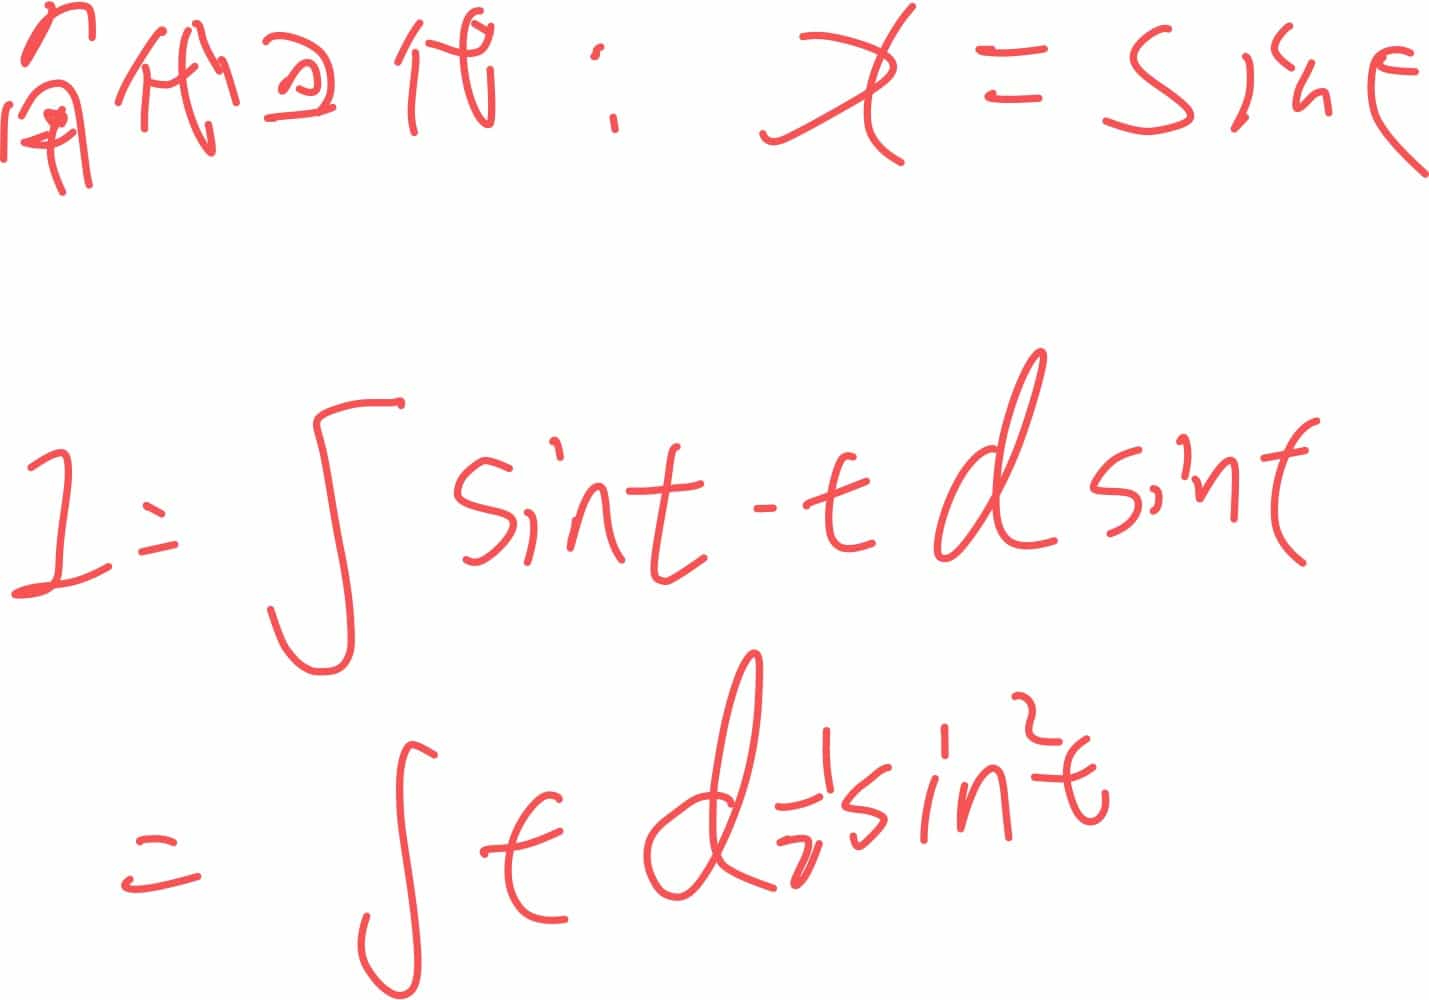 角代回代: x = sint
I = ∫ sint · t d sint
= ∫ t d ½ sin²t